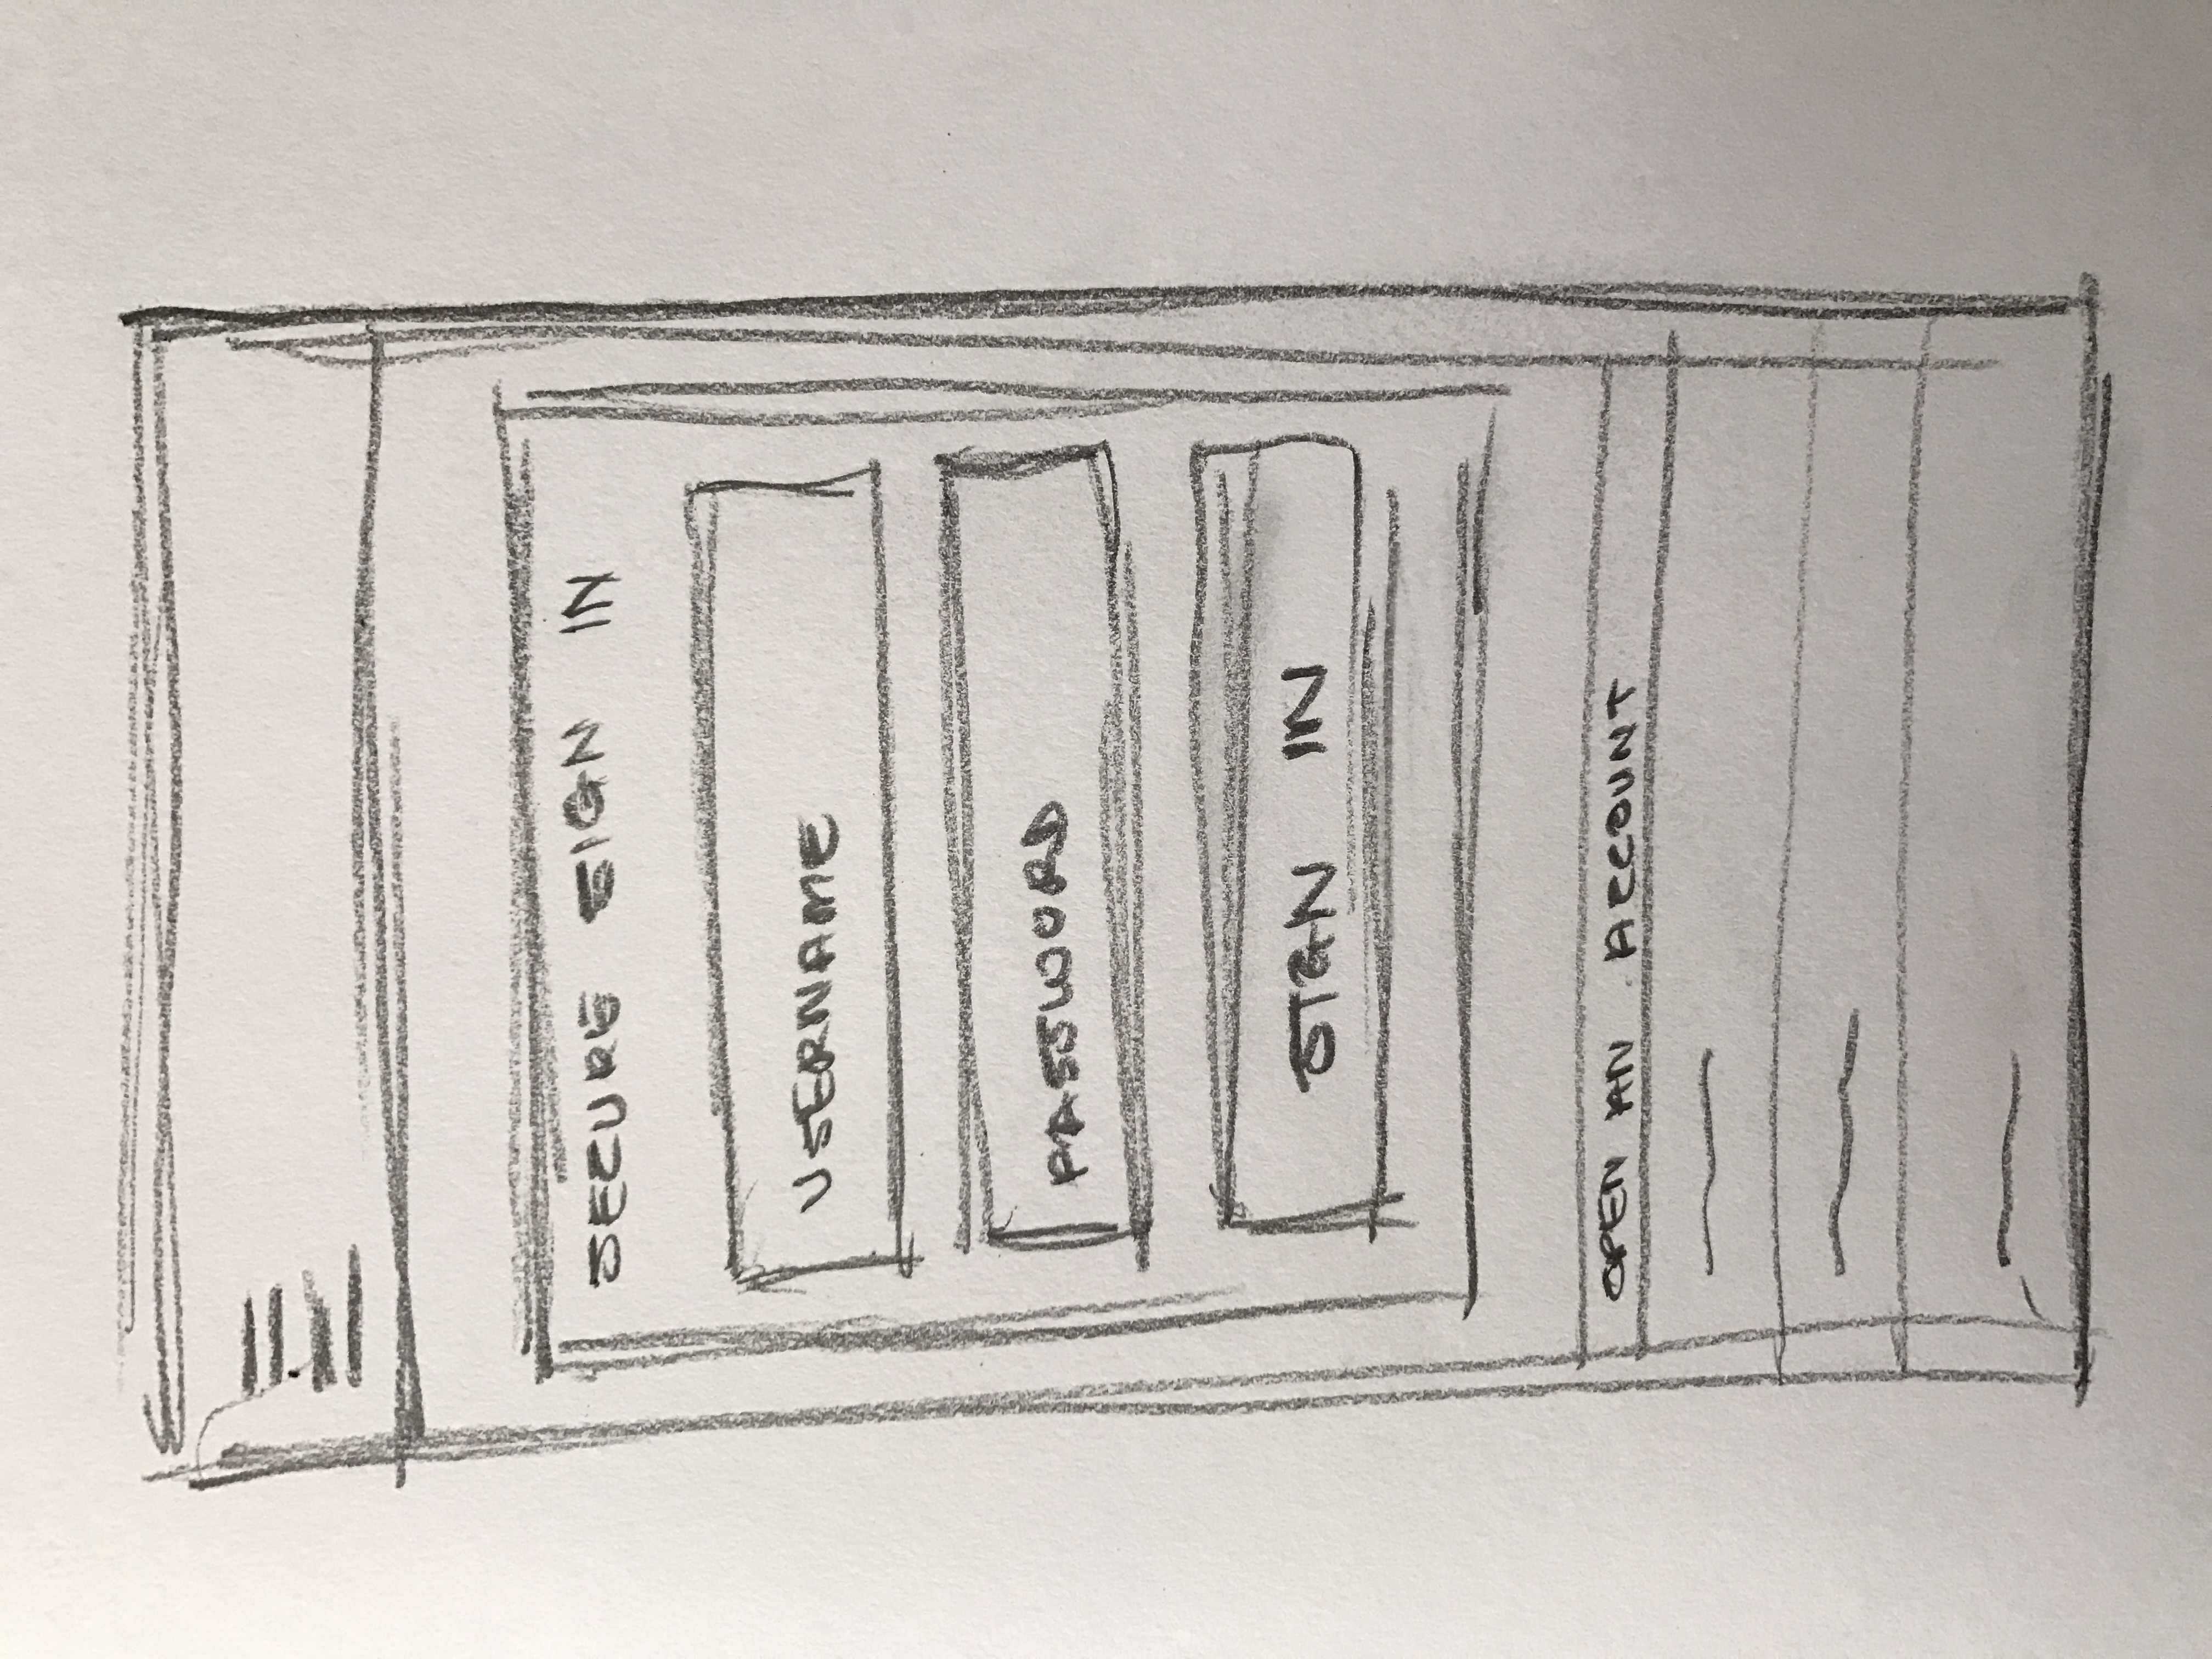 SECURE SIGN IN
USERNAME
PASSWORD
SIGN IN
OPEN AN ACCOUNT